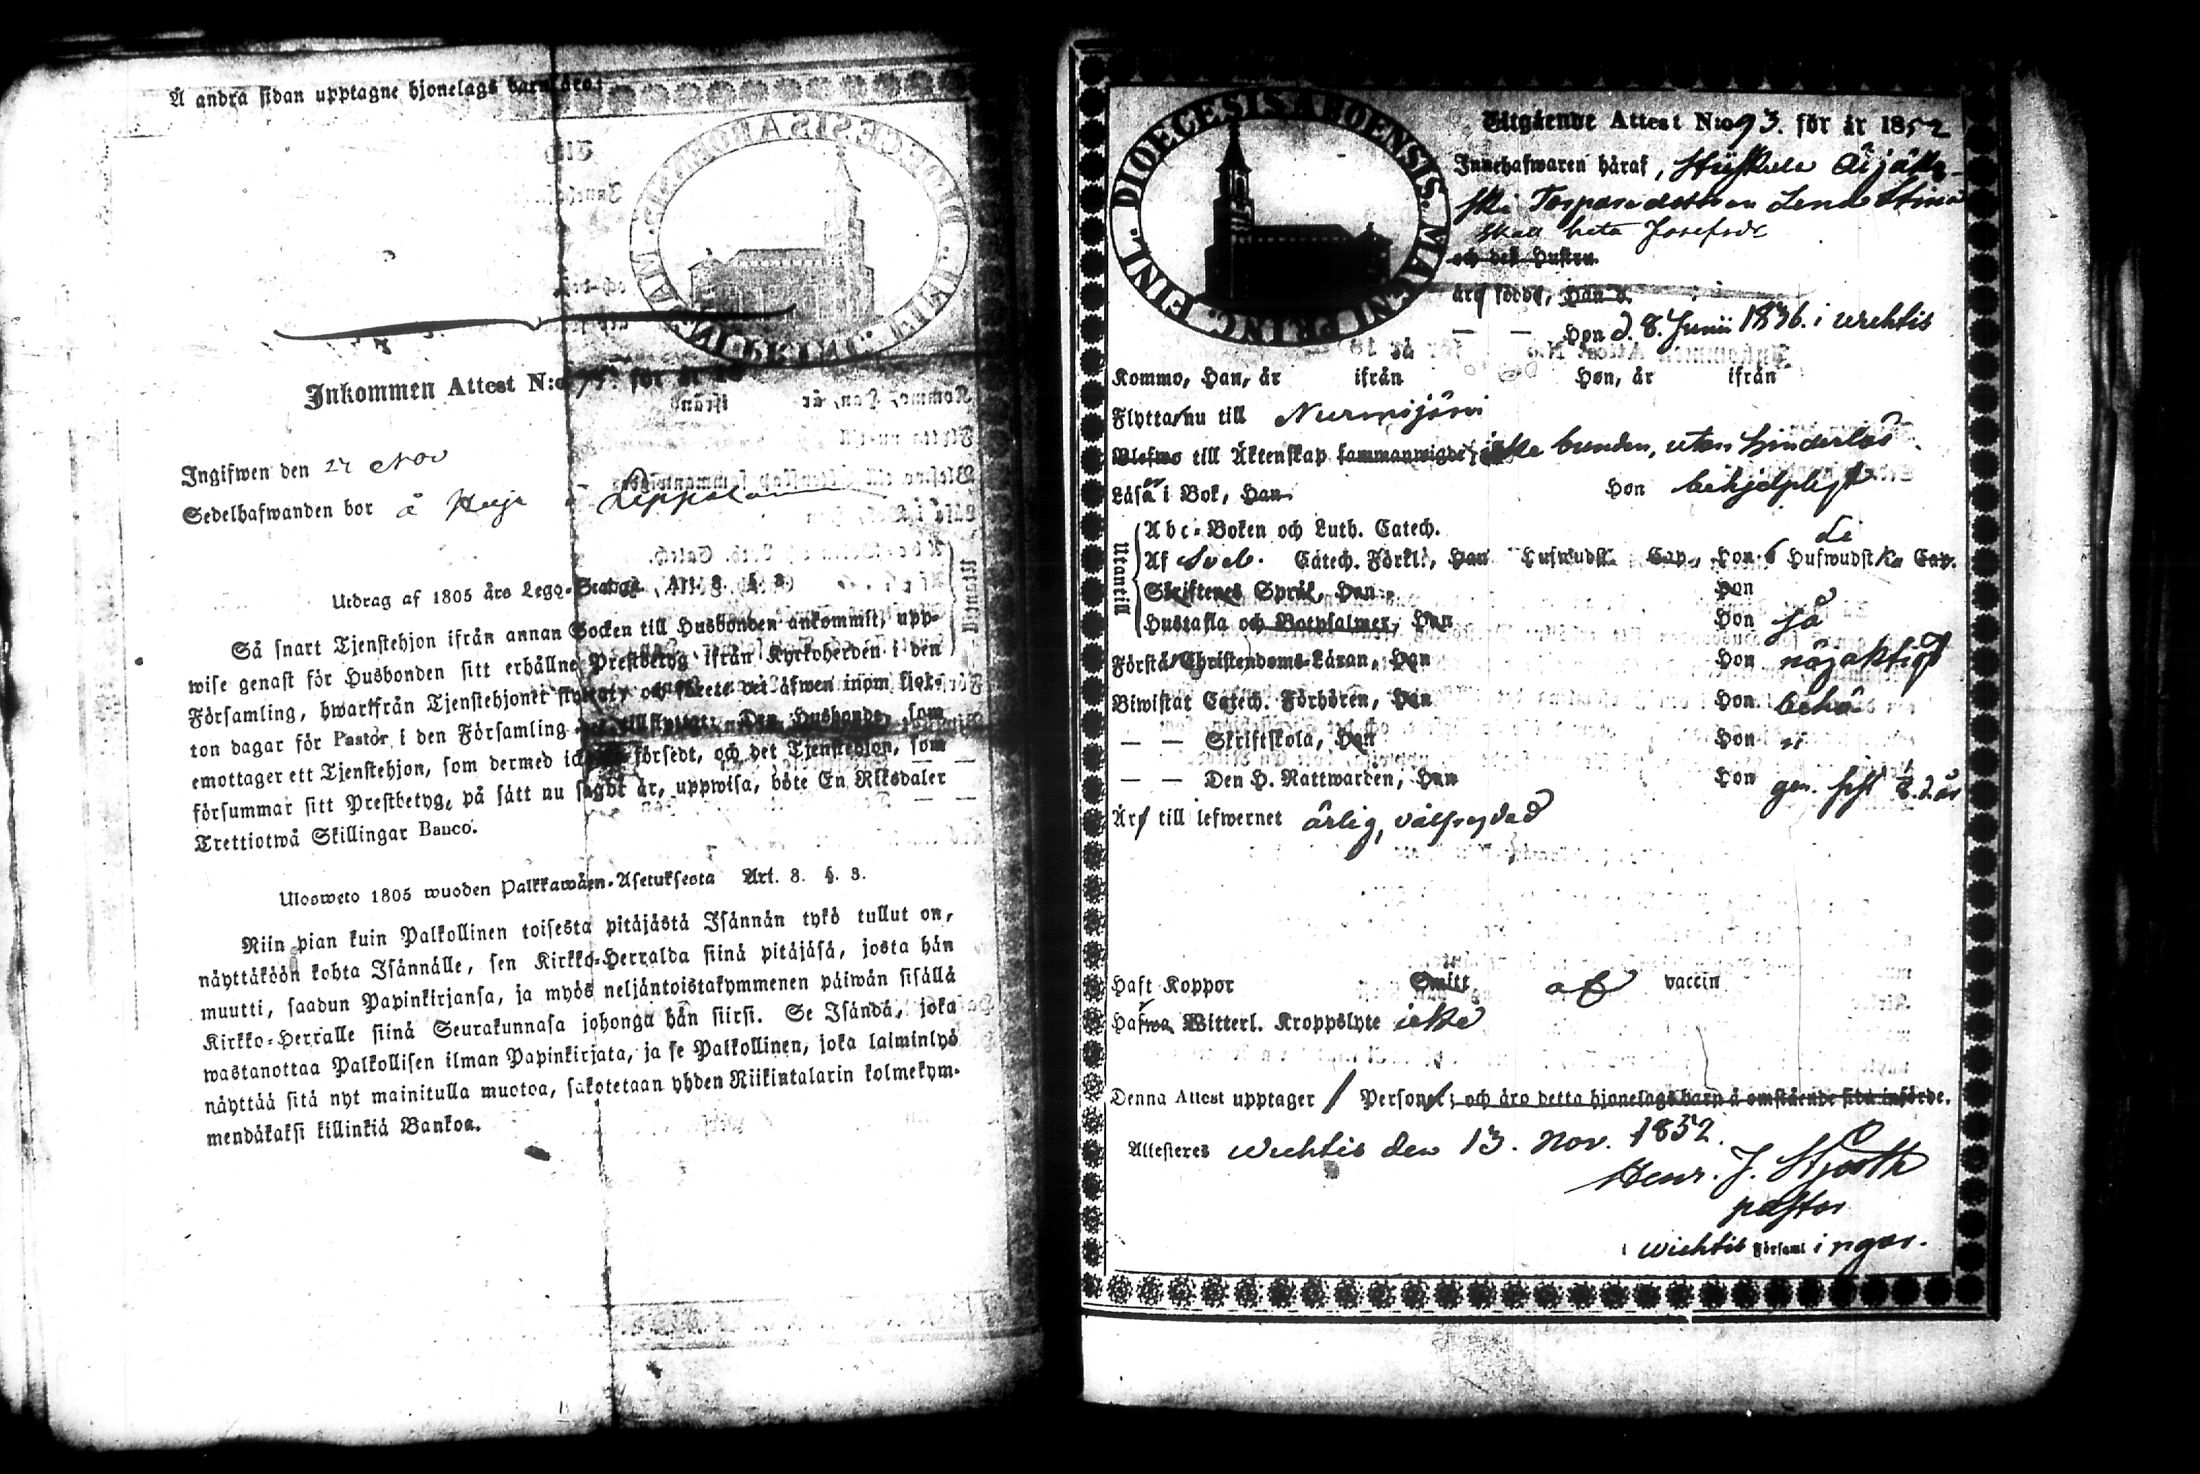 Å andra sidan upptagne hjonelags barn äro:
Inkommen Attest N:o för år 18
Ingifwen den 27 Nov
Sedelhafwanden bor å
Utdrag af 1805 års Lego-Stadga, Art. 8. §. 3.
Så snart Tjenstehjon ifrån annan Socken till Husbonden ankommit, upp-
wise genast för Husbonden sitt erhållne Prestbetyg ifrån Kyrkoherden i den
Församling, hwarifrån Tjenstehjonet flyttat, och äfwen inom fjor-
ton dagar för Pastor i den Församling Den Husbonde, som
emottager ett Tjenstehjon, som dermed icke försedt, och det Tjenstehjon, som
försummar sitt Prestbetyg, på sätt nu sagdt är, uppwisa, böte En Riksdaler
Trettiotwå Skillingar Banco.
Ulosweto 1805 wuoden Palkkawäen-Asetuksesta Art. 8. §. 3.
Niin pian kuin Palkollinen toisesta pitäjästä Isännän tykö tullut on,
näyttäköön kohta Isännälle, sen Kirkko-Herralda siinä pitäjäsä, josta hän
muutti, saadun Papinkirjansa, ja myös neljäntoistakymmenen päiwän sisällä
Kirkko-Herralle siinä Seurakunnasa johonga hän siirsi. Se Isändä, joka
wastanottaa Palkollisen ilman Papinkirjata, ja se Palkollinen, joka laiminlyö
näyttää sitä nyt mainitulla muotoa, sakotetaan yhden Riikintalarin kolmekym-
mendäkaksi killinkiä Bankoa.
DIOECESIS ABOENSIS. MAGNI PRINC. FINL.
Utgående Attest N:o 93. för år 1852
Innehafwaren häraf,
Torparedottren Lena Stina
skall heta Josefsdr
och des Hustru
äro födde, Han d.
— — Hon d. 8. Junii 1836. i Wichtis
Kommo, Han, år ifrån Hon, år ifrån
Flytta nu till Nurmijärvi
Blefwo till Äktenskap sammanwigde icke bunden, utan hinderlös
Läsa i Bok, Han Hon behjelpligt
Utantill
Abc-Boken och Luth. Catech.
Af Sveb. Catech. Förkl., Han Hufwudst. Cap., Hon 6 Hufwudst Cap.
Skriftenes Språk, Han Hon
Hustafla och Botpsalmer, Han Hon ja
Förstå Christendoms-Läran, Han Hon nöjaktigt
Biwistat Catech. Förhören, Han Hon
— — Skriftskola, Han Hon "
— — Den H. Nattwarden, Han Hon
Är till lefwernet ärlig, välfrejdad
Haft Koppor Smitt af vaccin
Hafwa Witterl. Kroppslyte icke
Denna Attest upptager 1 Person; och äro detta hjonelags barn å omstående sida införde.
Attesteres Wichtis den 13. Nov. 1852.
Henr. J. Hjorth
pastor
i Wichtis Församlingar.